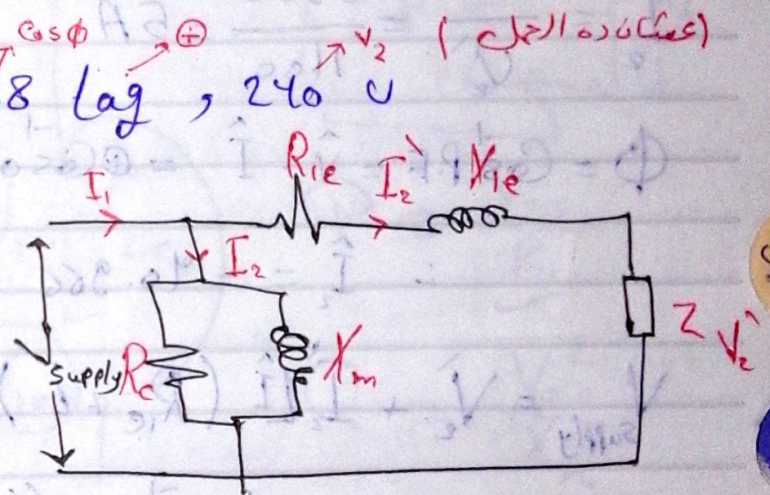 cosφ + V₂ (عشان ده الحمل)
8 lag , 240 V
R₁e
I₁ I₂` X₁e
I₂
Supply Rc Xm Z V₂`